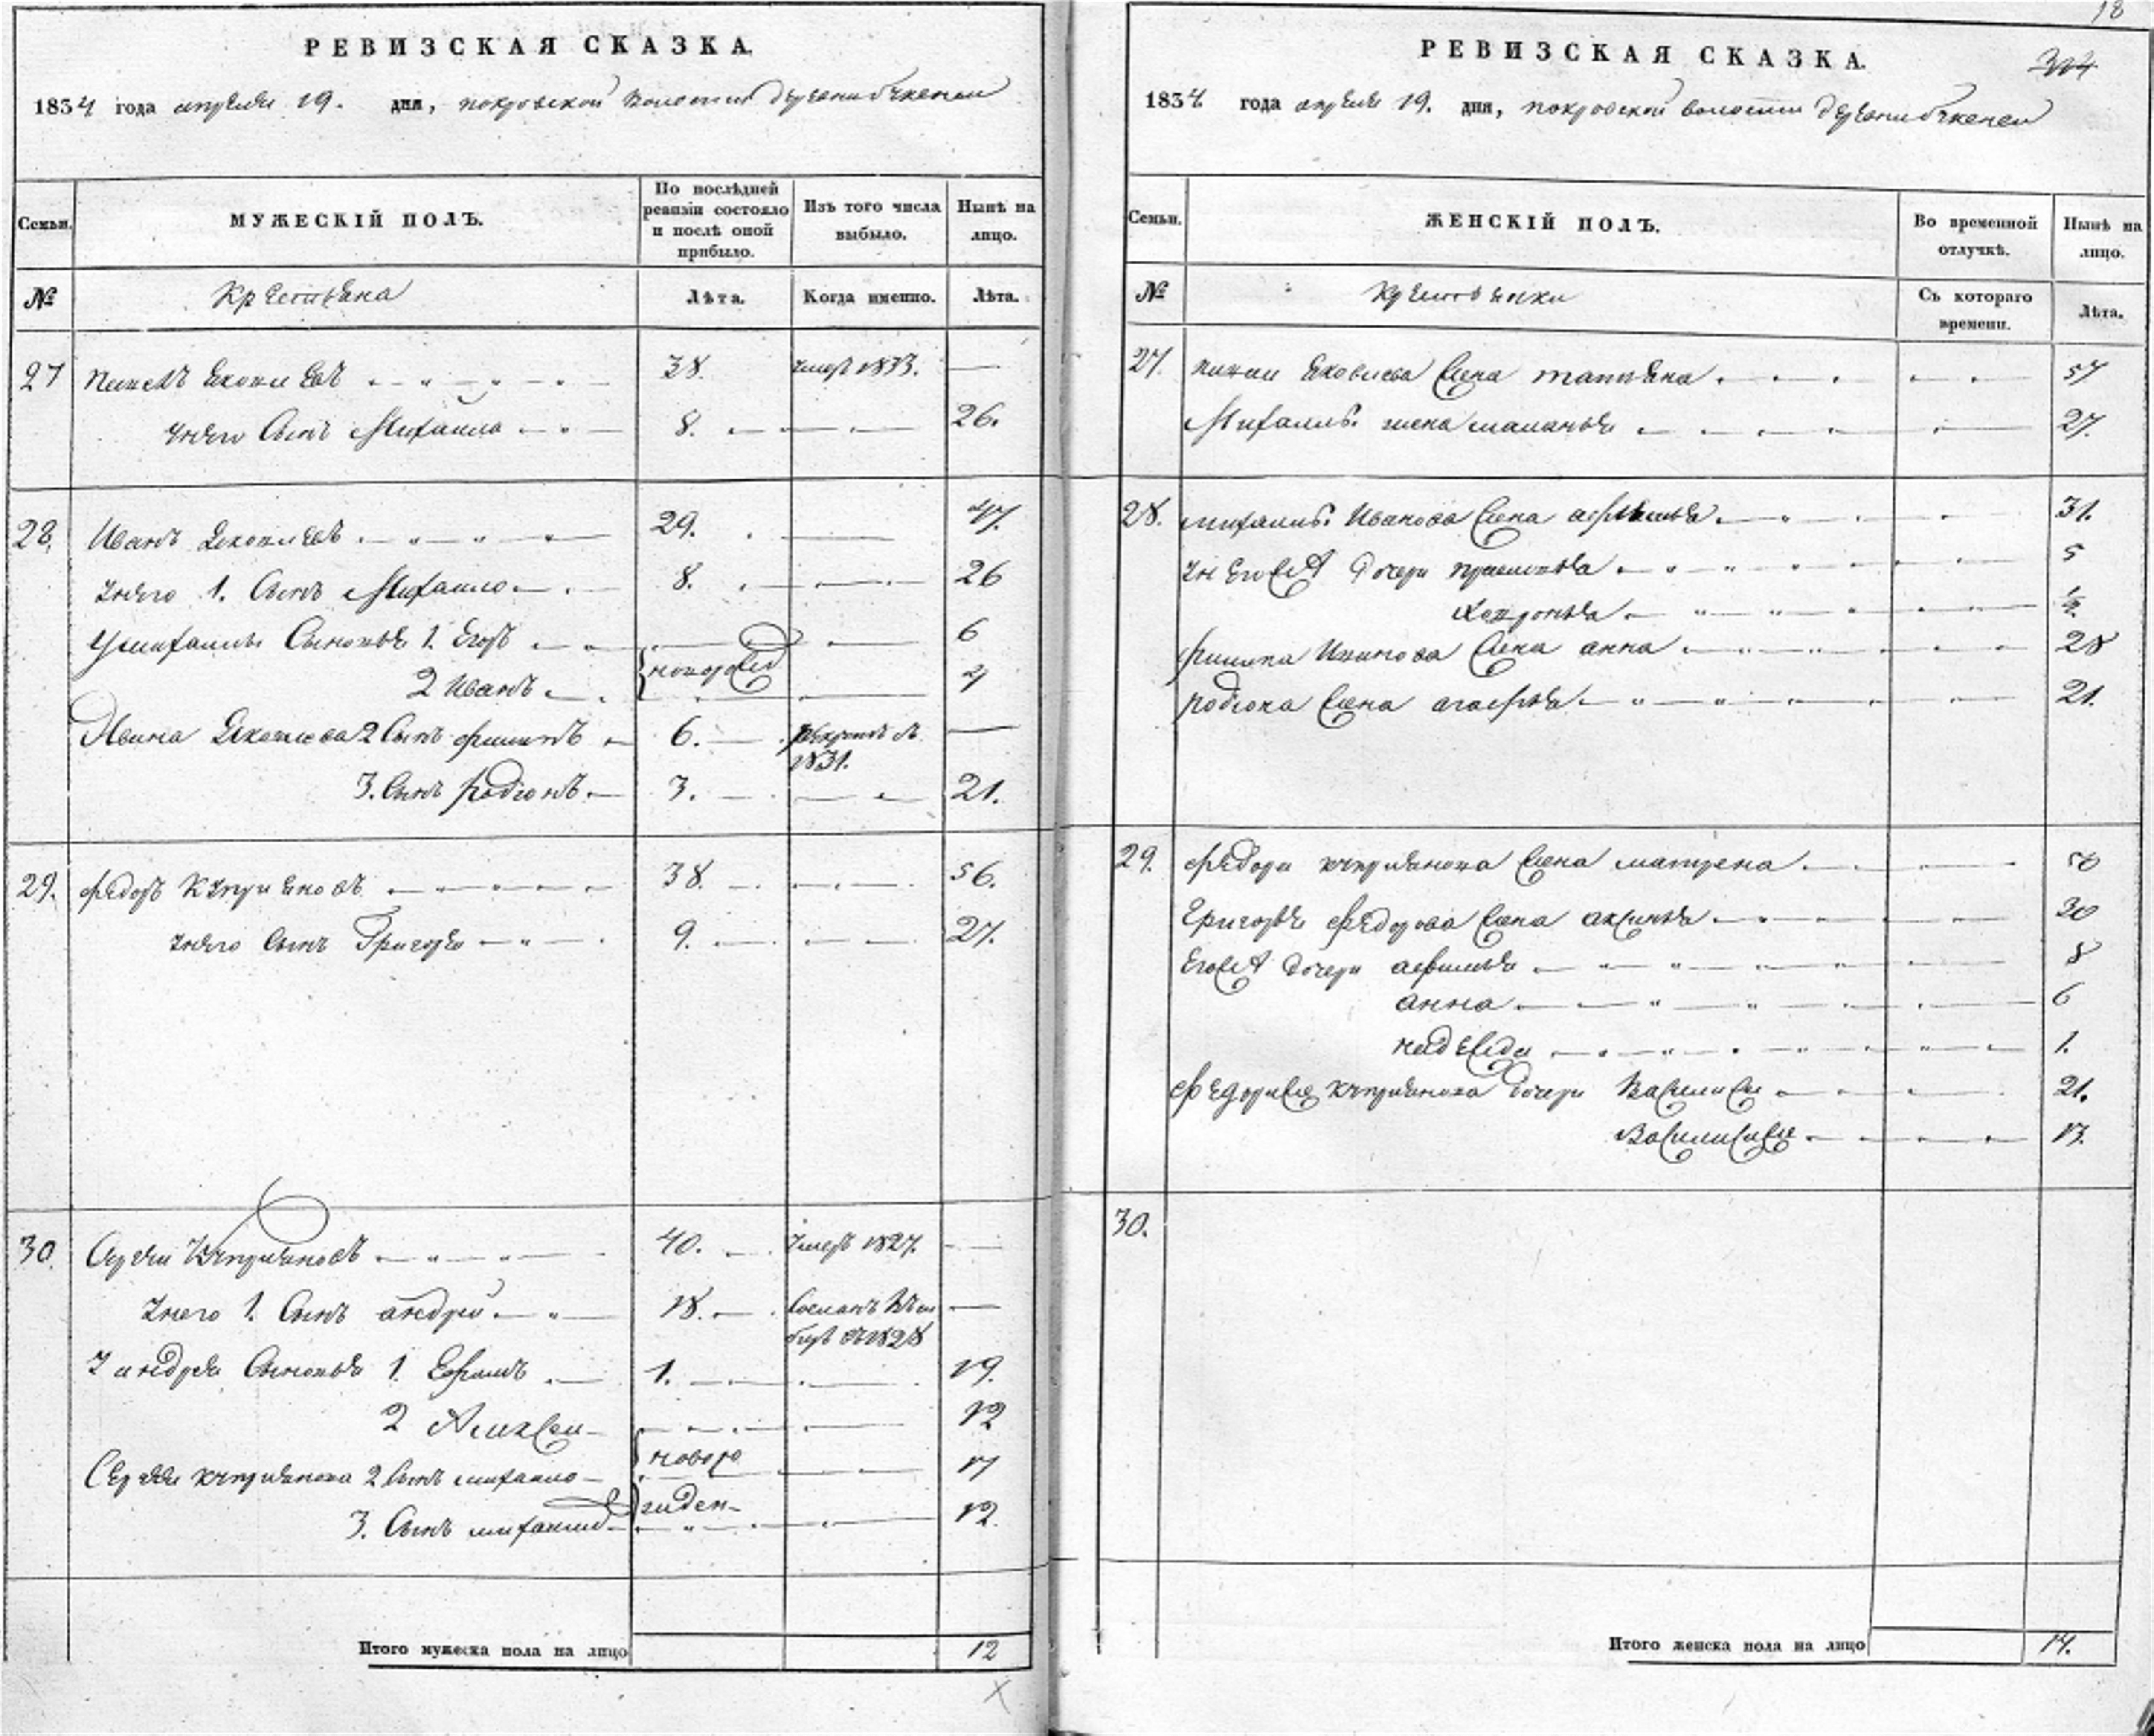 РЕВИЗСКАЯ СКАЗКА.
1834 года апреля 19. дня, покровской волости деревни
Семьи.
МУЖЕСКІЙ ПОЛЪ.
По послѣдней ревизіи состояло и послѣ оной прибыло.
Изъ того числа выбыло.
Нынѣ на лицо.
№
Крестьяна
Лѣта.
Когда именно.
Лѣта.
27 Яковлевъ 38. умеръ 1833. —
унего Сынъ Михайла 8. 26.
28. Иванъ Яковлевъ 29. 47.
унего 1. Сынъ Михайло 8. 26
Умихайлы Сыновья 1. Егоръ 6
2 Иванъ 4
новорожд
Ивана Яковлева 2 Сынъ филипъ 6. 1831. —
3. Сынъ родіонъ 3. 21.
29. федоръ Куприяновъ 38. 56.
унего Сынъ Григорье 9. 27.
30. Сергѣи Куприяновъ 40. умеръ 1827. —
Унего 1. Сынъ андрей 18. Сосланъ въ Си —
бирь въ 1828
У андрея Сыновья 1. Ефимъ 1. 19.
2 Алексеи 12
новоро
Сергѣя куприянова 2 Сынъ михаило 17
жден
3. Сынъ михаило 12
Итого мужеска пола на лицо 12
18
РЕВИЗСКАЯ СКАЗКА.
1834 года апреля 19. дня, покровской волости деревни
Семьи.
ЖЕНСКІЙ ПОЛЪ.
Во временной отлучкѣ.
Нынѣ на лицо.
№
Крестьянки
Съ котораго времени.
Лѣта.
27. Яковлева жена татьяна 57
Михаилы жена маланья 27.
28. михаилы Иванова жена 31.
дочери 5
½
филипа Иванова жена анна 28
родіона жена агафья 21.
29. федора куприянова жена матрена 50
Григорья федорова жена аксинья 30
Егоже дочери афимья 8
анна 6
надежда 1.
федораже куприянова дочери Василиса 21.
Василисаже 13.
30.
Итого женска пола на лицо 14.